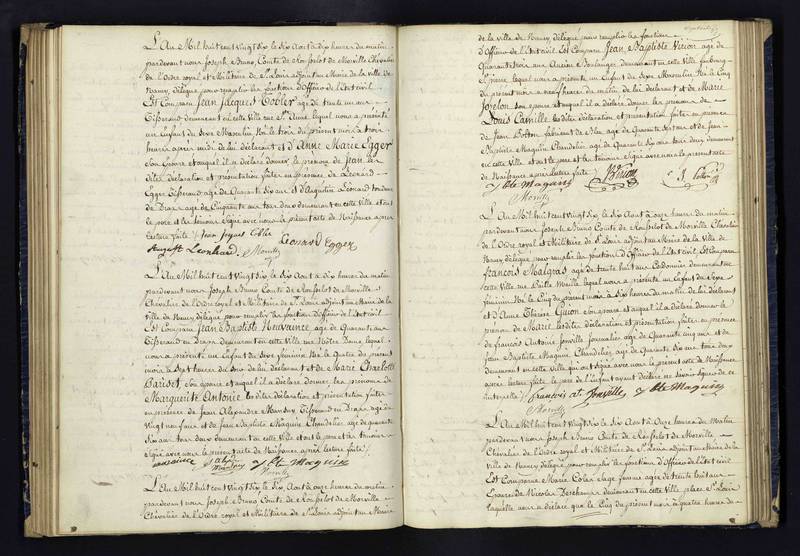 L'An Mil huit cent vingt six le six Août à dix heures du matin
pardevant nous Joseph Bruno Comte de Roufselot de Morville Chevalier
de l'Ordre royal et Militaire de St. Louis adjoint au Maire de la ville de
Nancy, délégué pour remplir les fonctions d'Officier de l'état civil
Est Comparu Jean Jacques Tobler âgé de trente un ans
Tifserand demeurant en cette Ville rue Ste. Anne, lequel nous a présenté
un Enfant du Sexe Masculin Né le trois du présent mois à trois
heures après midi de lui déclarant et d'Anne Marie Egger
son épouse et auquel il a déclaré donner le prénom de Jean les
dites déclaration et présentation faites en présence de Léonard
Egger Tifserand, âgé de Quarante six ans et d'Augustin Léonard tondeur
de Draps âgé de Cinquante un ans tous deux demeurant en cette Ville et ont
le père et les témoins signé avec nous le présent acte de Naifsance après
lecture faite
Leonhard Morville Leonard Egger
L'An Mil huit cent Vingt six le six Août à dix heures du matin
pardevant nous Joseph Bruno Comte de Roufselot de Morville
Chevalier de l'Ordre royal et Militaire de St. Louis adjoint au Maire de la
ville de Nancy, délégué pour remplir les fonctions d'Officier de l'état civil
Est Comparu Jean Baptiste âgé de Quarante ans
Tifserand en Draps demeurant en cette Ville rue Notre Dame, lequel
nous a présenté un Enfant du Sexe féminin Né le Quatre du présent
mois à sept heures du soir de lui déclarant et de Marie Charlotte
son épouse et auquel il a déclaré donner les prénoms de
Marguerite Antonie les dites déclaration et présentation faites
en présence de Jean Alexandre Tifserand en Draps âgé de
vingt neuf ans et de Jean Baptiste Maquin Chandelier, âgé de quarante
six ans tous deux demeurant en cette Ville et ont le père et les témoins
signé avec nous le présent acte de Naifsance après lecture faite
Maquin
Morville
L'An Mil huit cent Vingt six le six Août à onze heures du matin
pardevant nous Joseph Bruno Comte de Roufselot de Morville
Chevalier de l'Ordre royal et Militaire de St. Louis adjoint au Maire
de la ville de Nancy, délégué pour remplir les fonctions
d'Officier de l'état civil Est Comparu Jean Baptiste Virion âgé de
Quarante trois ans Ancien Boulanger demeurant en cette Ville faubourg
St. Pierre, lequel nous a présenté un Enfant du Sexe Masculin Né le Cinq
du présent mois à neuf heures du matin de lui déclarant et de Marie
son épouse et auquel il a déclaré donner les prénoms de
Louis Camille les dites déclaration et présentation faites en présence
de Jean fabricant de âgé de Quarante six ans et de Jean
Baptiste Maquin Chandelier, âgé de Quarante six ans tous deux demeurant
en cette Ville et ont le père et les témoins signé avec nous le présent acte
de Naifsance après lecture faite
Maquin Virion
Morville
L'An Mil huit cent Vingt six le six Août à onze heures du matin
pardevant nous Joseph Bruno Comte de Roufselot de Morville Chevalier
de l'Ordre royal et Militaire de St. Louis adjoint au Maire de la Ville de
Nancy délégué pour remplir les fonctions d'Officier de l'état civil Est Comparu
François Malgras âgé de trente huit ans Cordonnier demeurant en
cette Ville rue lequel nous a présenté un Enfant du Sexe
féminin Né le Cinq du présent mois à dix heures du matin de lui déclarant
et d'Anne Thérèse Guion son épouse et auquel il a déclaré donner le
prénom de Marie les dites déclaration et présentation faites en présence
de François Antoine Jonville Journalier, âgé de Quarante cinq ans et de
Jean Baptiste Maquin Chandelier, âgé de Quarante six ans tous deux
demeurant en cette Ville qui ont signé avec nous le présent acte de Naifsance
après lecture faite, le père de l'enfant ayant déclaré ne savoir signer de ce
interpellé
François Jonville Maquin
Morville
L'An Mil huit cent Vingt six le six Août à onze heures du Matin
pardevant nous Joseph Bruno Comte de Roufselot de Morville
Chevalier de l'Ordre royal et Militaire de St. Louis adjoint au Maire de la
Ville de Nancy délégué pour remplir les fonctions d'Officier de l'état civil
Est Comparue Marie Sage femme âgée de trente huit ans
Epouse de Nicolas Deschamps demeurant en cette Ville place St.
laquelle nous a déclaré que le Cinq du présent mois à quatre heures du